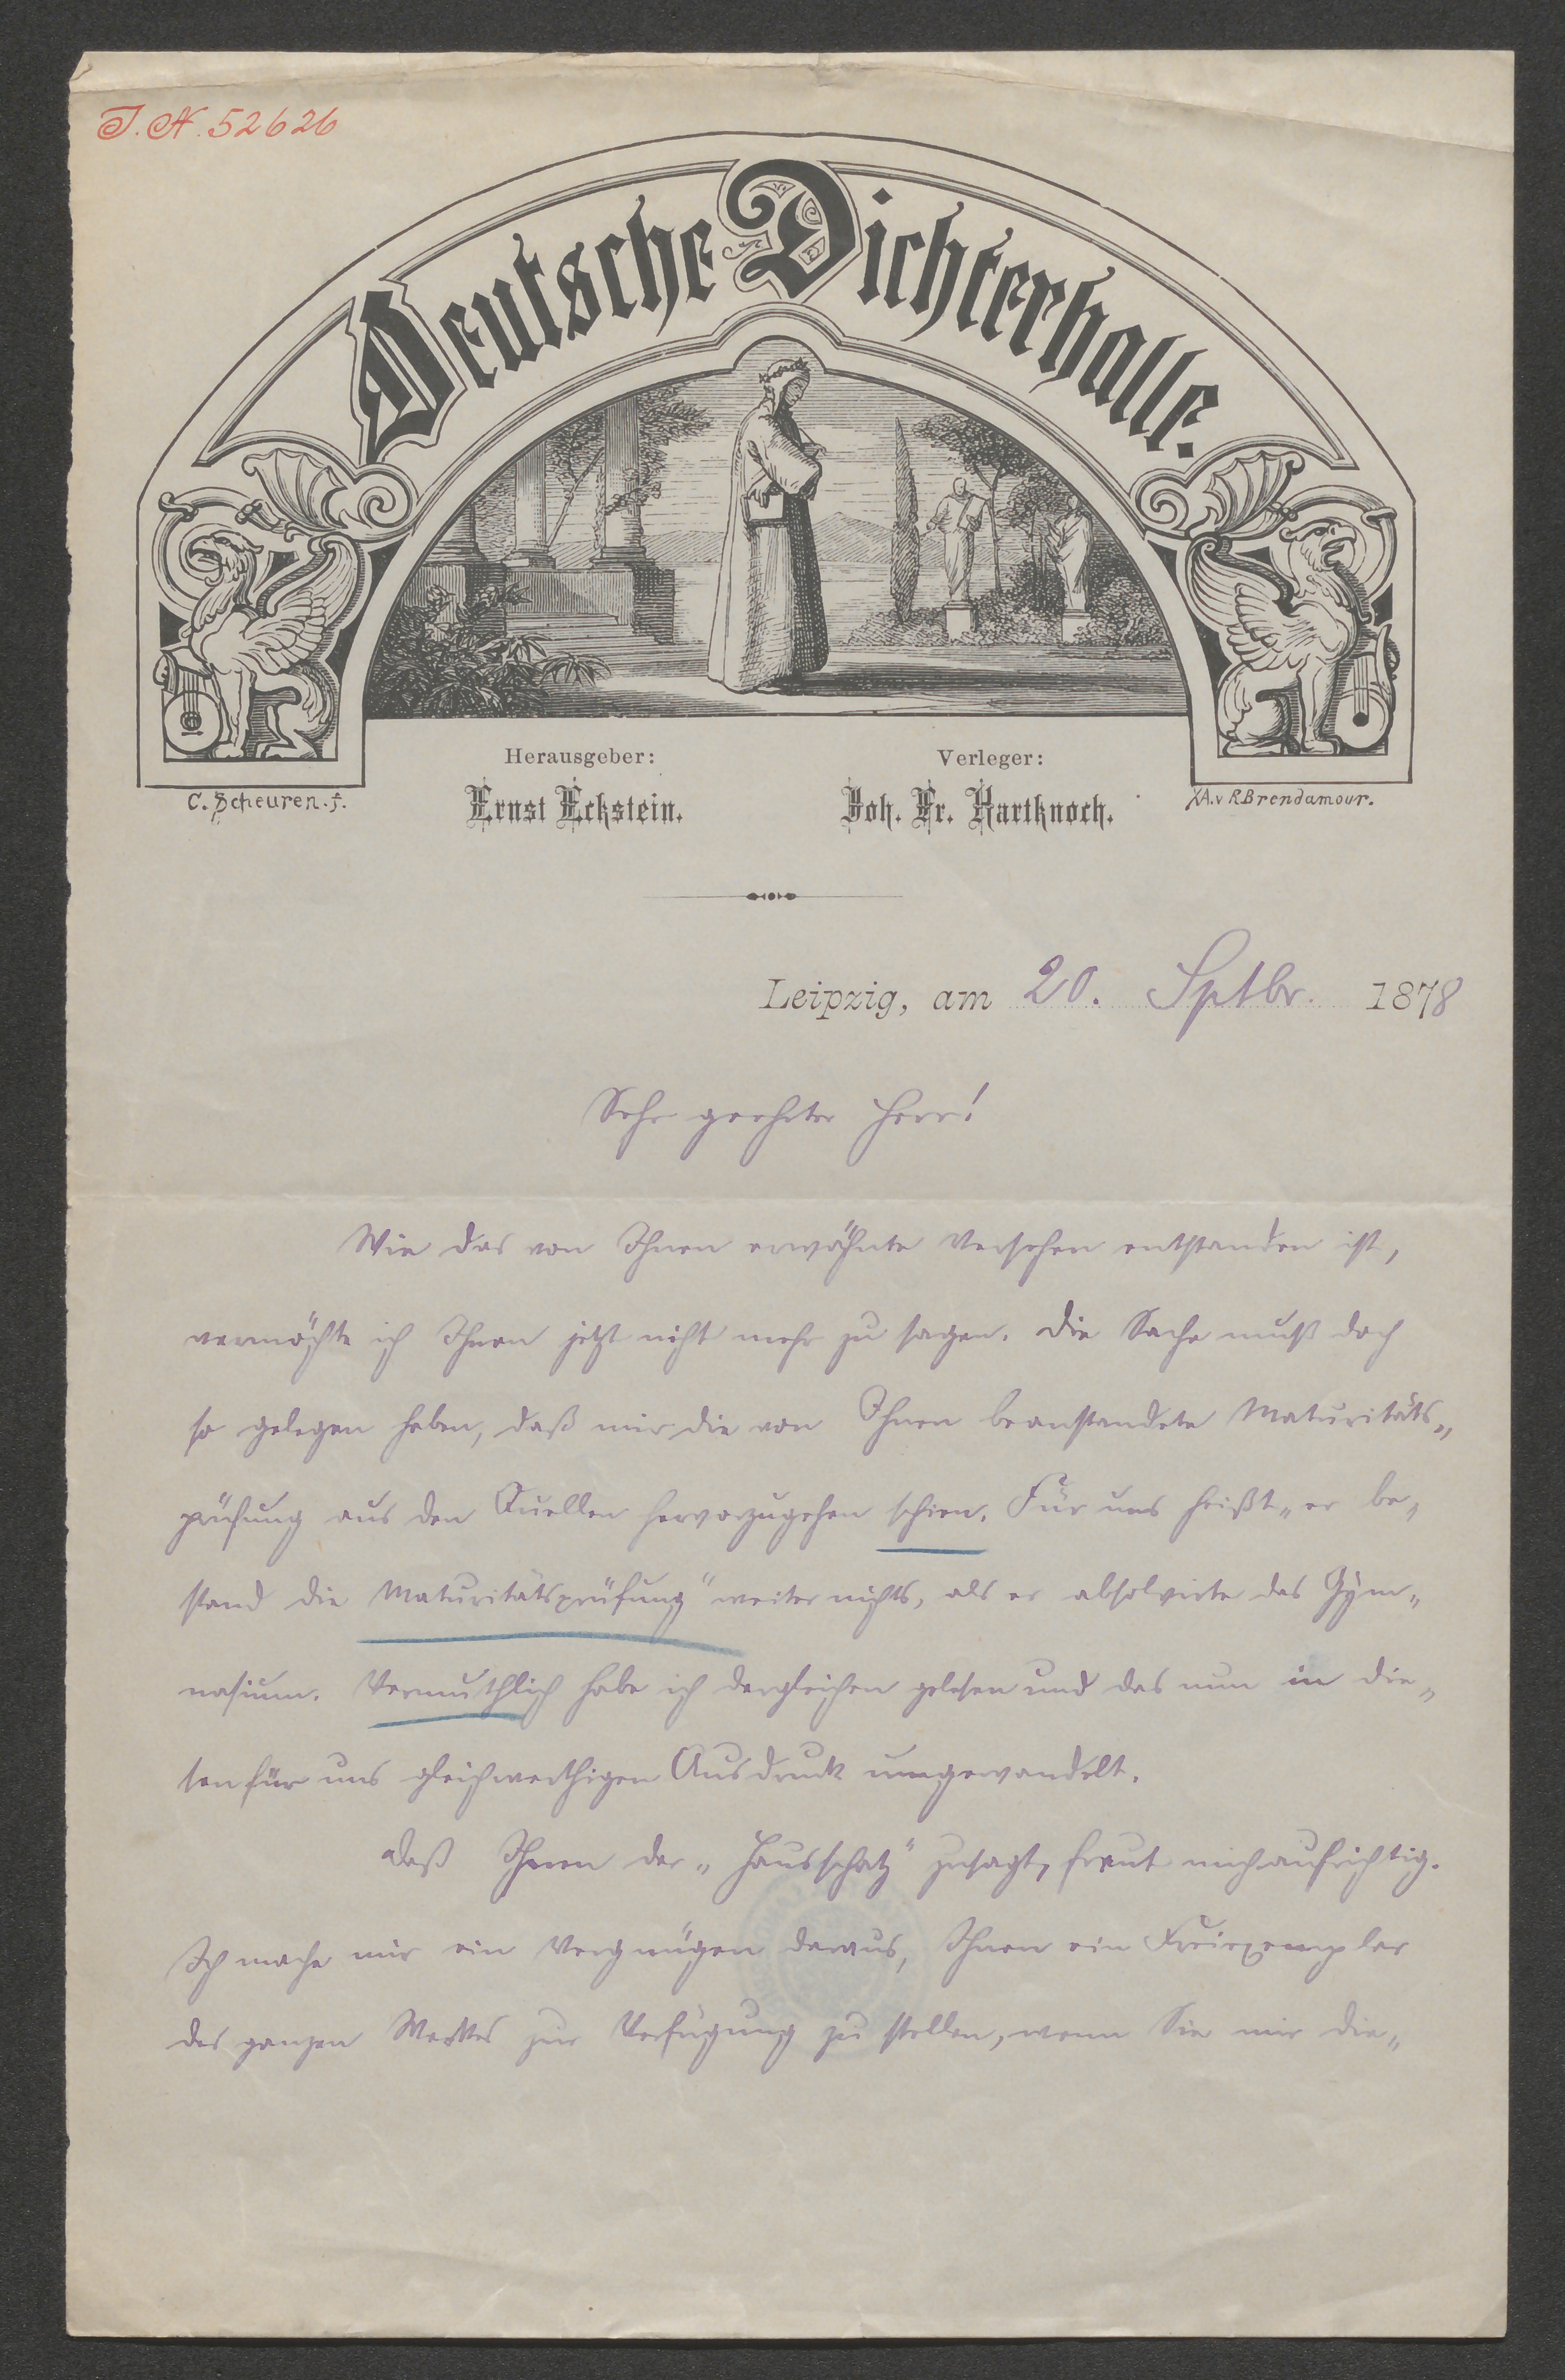 J. N. 52626
Deutsche Dichterhalle.
C. Scheuren. f.
Herausgeber:
Ernst Eckstein.
Verleger:
Joh. Fr. Hartknoch.
XA. v R. Brendamour.
Leipzig, am 20. Sptbr. 1878
Sehr geehrter Herr!
Wie das von Ihnen erwähnte Versehen entstanden ist,
vermöchte ich Ihnen jetzt nicht mehr zu sagen. Die Sache muß doch
so gelegen haben, daß mir die von Ihnen beanstandete Maturitäts„
prüfung aus den Quellen hervorzugehen schien. Für uns heißt „er be„
stand die Maturitätsprüfung“ weiter nichts, als er absolvirte das Gym„
nasium. Vermuthlich habe ich dergleichen gelesen und das nun in die„
sen für uns gleichwerthigen Ausdruck umgewandelt.
Daß Ihnen der „Hausschatz“ zusagt, freut mich aufrichtig.
Ich mache mir ein Vergnügen daraus, Ihnen ein Freiexemplar
des ganzen Werkes zur Verfügung zu stellen, wenn Sie mir die„